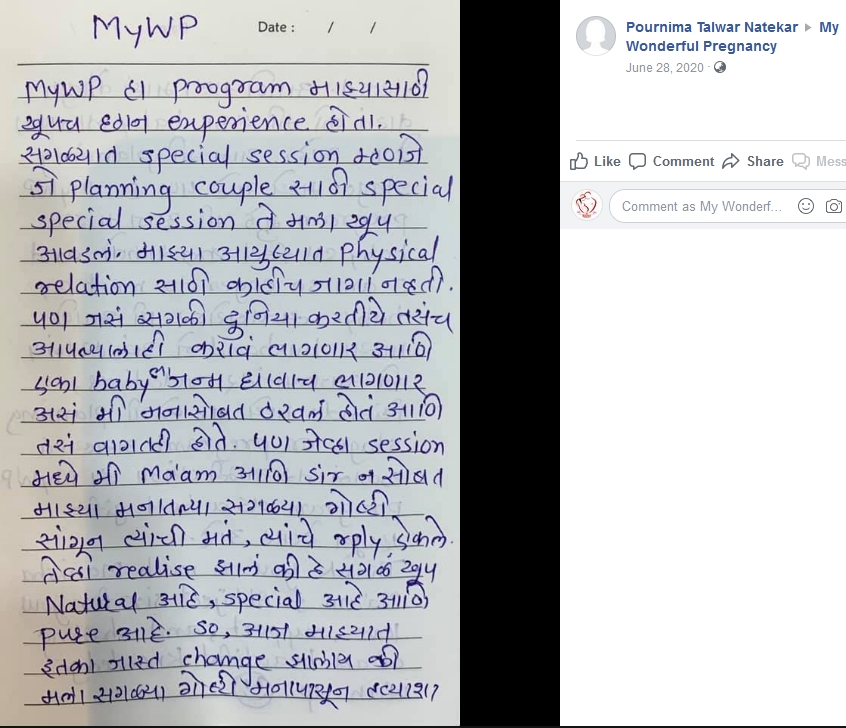 MyWP Date : / /
MyWP हा program माझ्यासाठी
खूपच छान experience होता.
सगळ्यात special session म्हणजे
जे planning couple साठी special
special session ते मला खूप
आवडलं. माझ्या आयुष्यात Physical
relation साठी काहीच जागा नव्हती.
पण जसं सगळी दुनिया करतीये तसंच
आपल्यालाही करावं लागणार आणि
एका baby ला जन्म द्यावाच लागणार
असं मी मनासोबत ठरवलं होतं आणि
तसं वागतही होते. पण जेव्हा session
मध्ये मी Ma'am आणि सर न सोबत
माझ्या मनातल्या सगळ्या गोष्टी
सांगून त्यांची मतं, त्यांचे rply ऐकले.
तेव्हा realise झालं की हे सगळं खूप
Natural आहे, special आहे आणि
pure आहे. so, आज माझ्यात
इतका जास्त change झालाय की
मला सगळ्या गोष्टी मनापासून हव्याशा
Pournima Talwar Natekar ▸ My
Wonderful Pregnancy
June 28, 2020 ·
Like Comment Share Mess
Comment as My Wonderf...